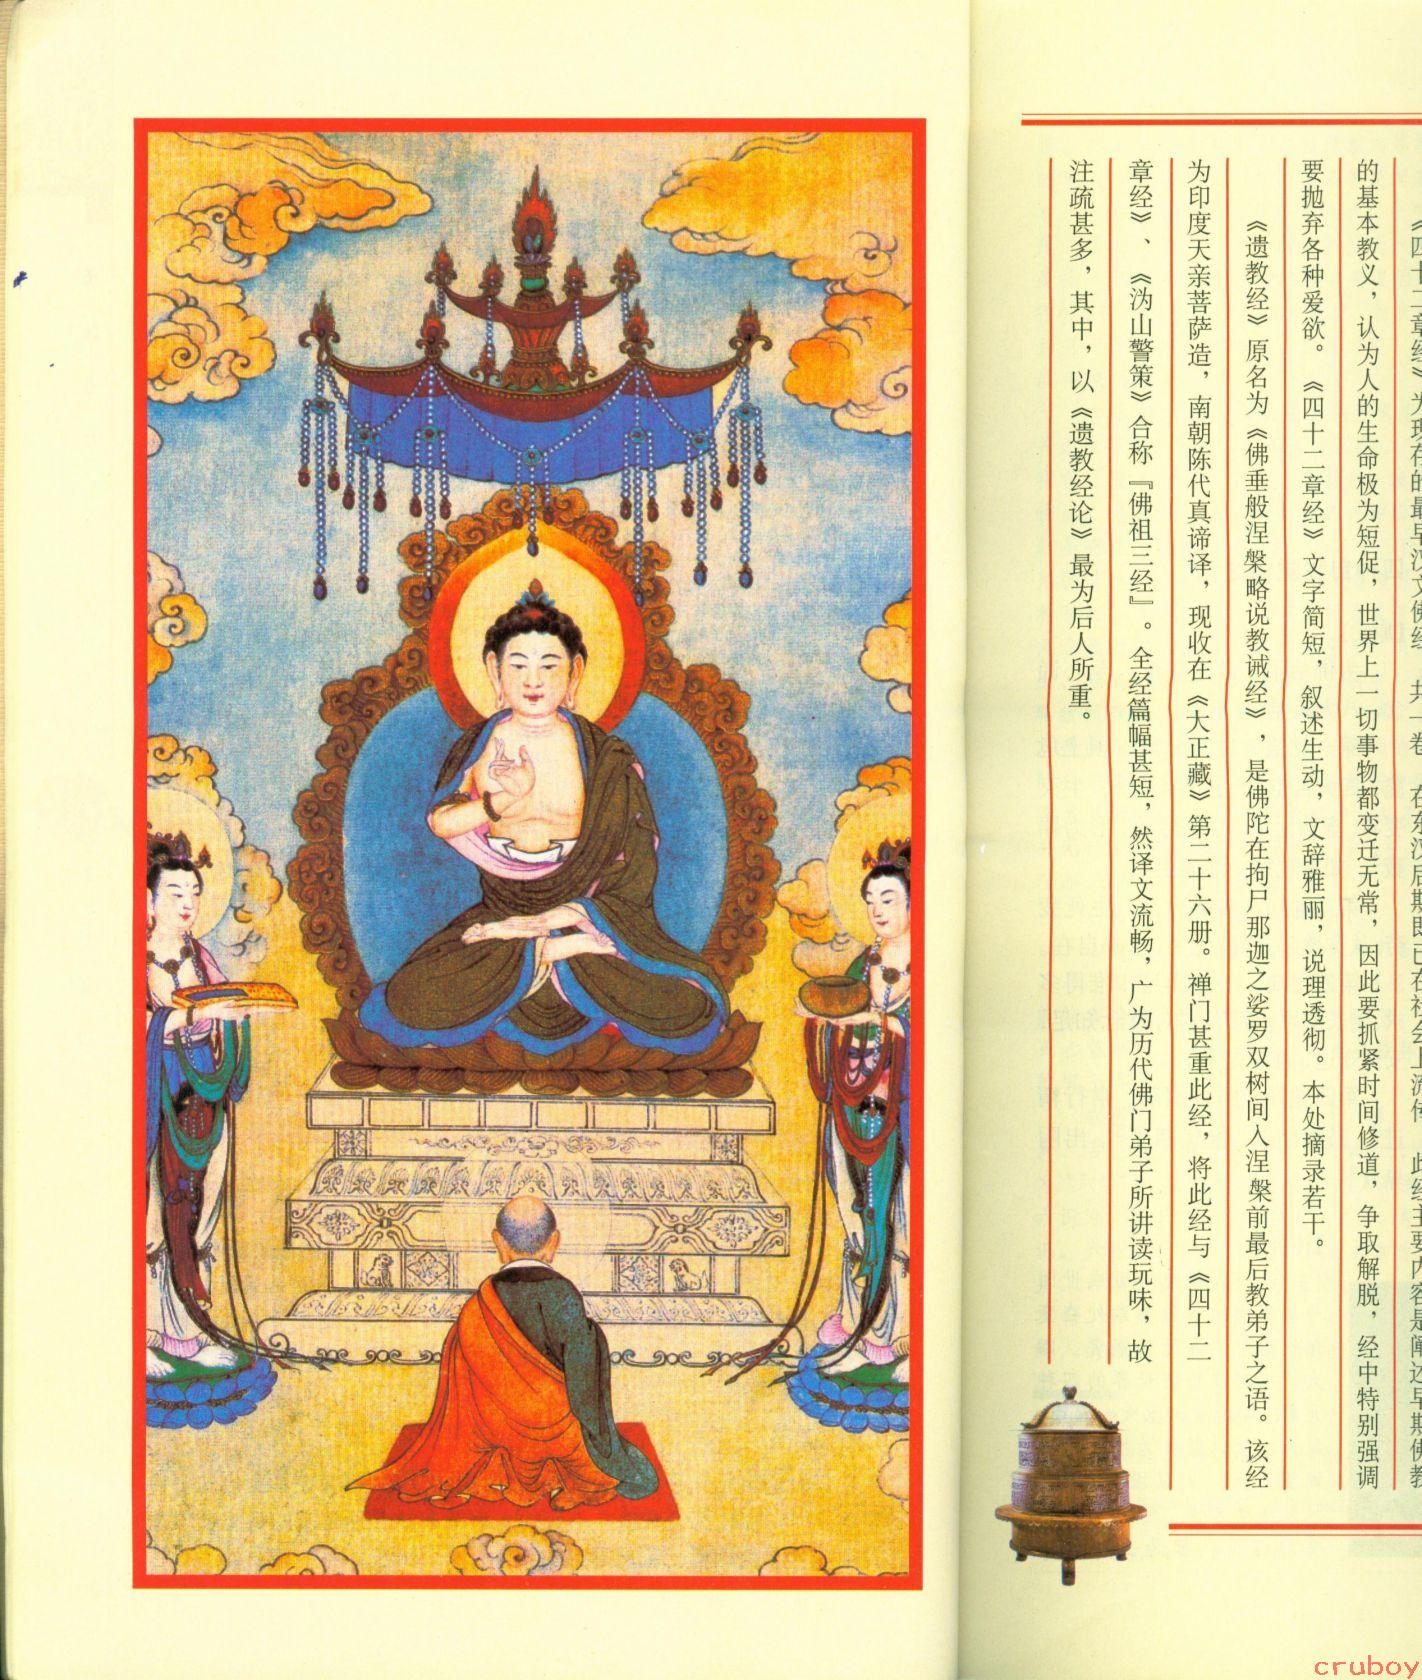 《四十二章经》为现存的最早汉文佛经，共一卷，在东汉后期即已在社会上流传，此经主要内容是阐述早期佛教
的基本教义，认为人的生命极为短促，世界上一切事物都变迁无常，因此要抓紧时间修道，争取解脱，经中特别强调
要抛弃各种爱欲。《四十二章经》文字简短，叙述生动，文辞雅丽，说理透彻。本处摘录若干。
《遗教经》原名为《佛垂般涅槃略说教诫经》，是佛陀在拘尸那迦之娑罗双树间入涅槃前最后教弟子之语。该经
为印度天亲菩萨造，南朝陈代真谛译，现收在《大正藏》第二十六册。禅门甚重此经，将此经与《四十二
章经》、《沩山警策》合称『佛祖三经』。全经篇幅甚短，然译文流畅，广为历代佛门弟子所讲读玩味，故
注疏甚多，其中，以《遗教经论》最为后人所重。
cruboy